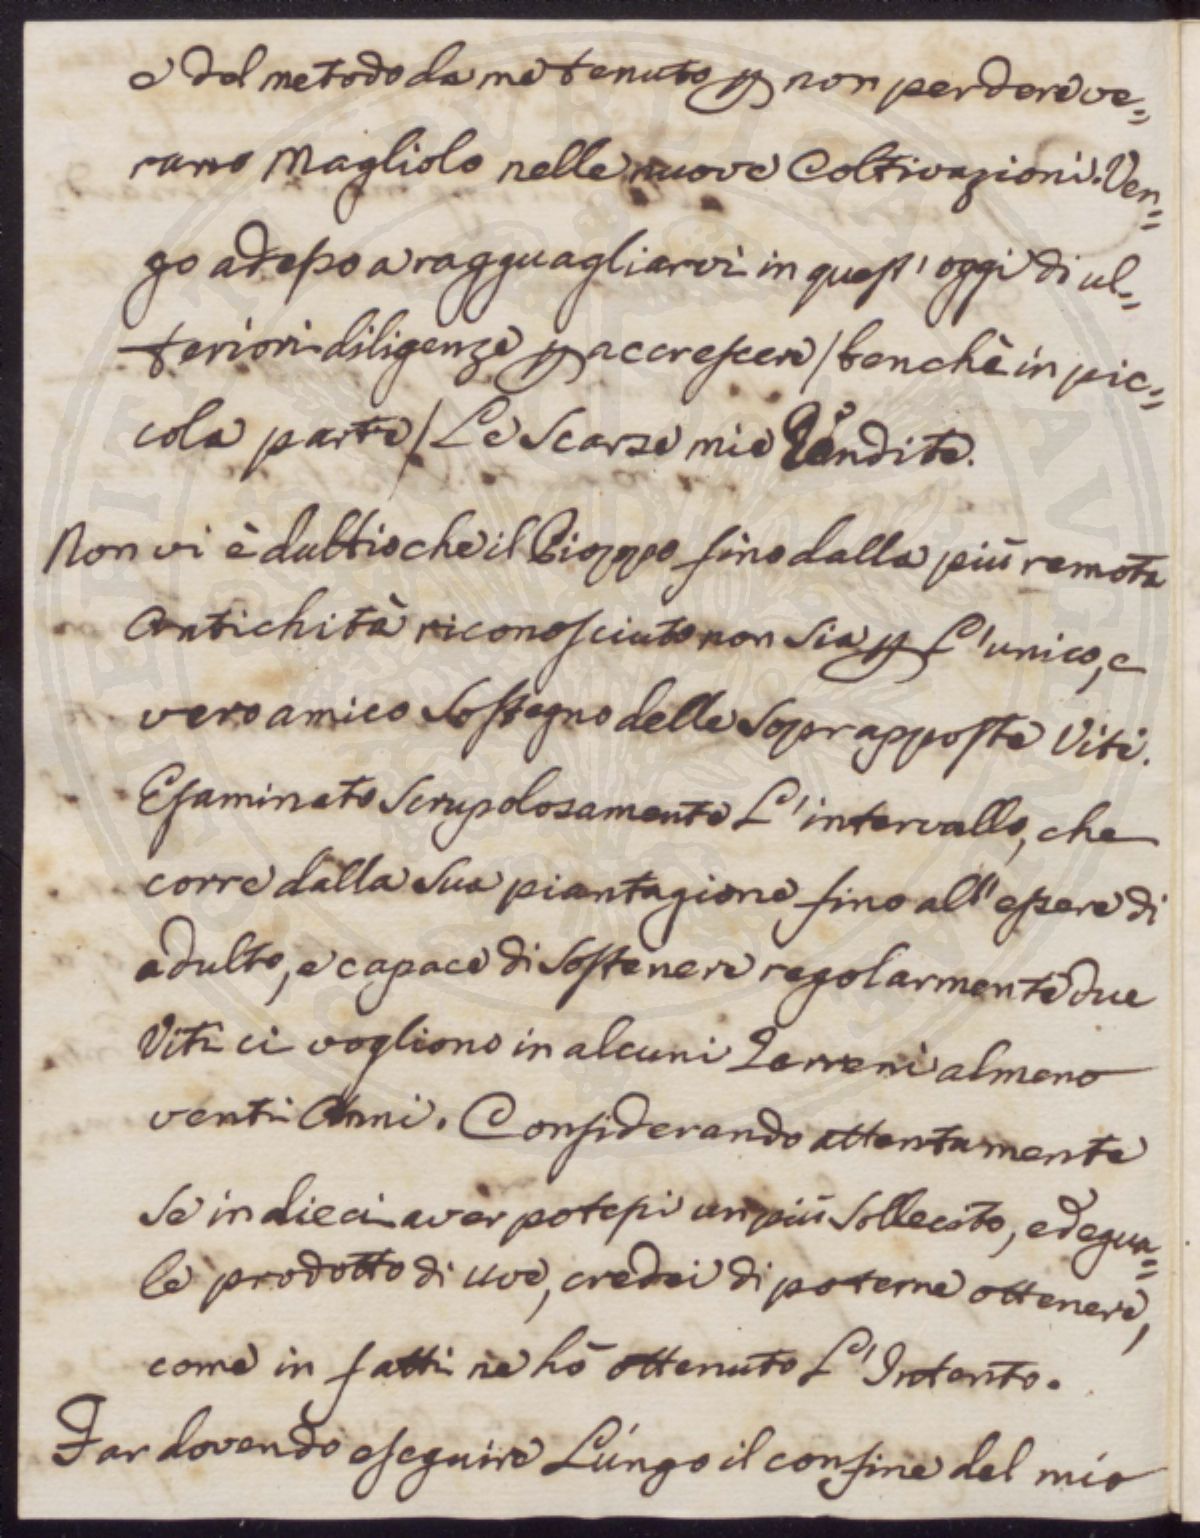 e del metodo da me tenuto p non perdere ve=
runo Magliolo nelle nuove Coltivazioni. Ven=
go adesso a ragguagliarvi in quest' oggi di ul=
teriori diligenze p accrescere / benchè in pic=
cola parte / Le Scarse mie Rendite.
Non vi è dubbio che il Pioppo fino dalla più remota
Antichità riconosciuto non Sia p L'unico, e
vero amico Sostegno delle Soprapposte Viti.
Esaminato Scrupolosamente L'intervallo, che
corre dalla Sua piantagione fino all'essere di
adulto, e capace di Sostenere regolarmente due
Viti ci vogliono in alcuni Terreni almeno
venti Anni. Considerando attentamente
Se in dieci aver potessi un più Sollecito, ed egua=
le prodotto di uve, credei di poterne ottenere,
come in fatti ne hò ottenuto L'Intento.
Far dovendo eseguire Lungo il confine del mio